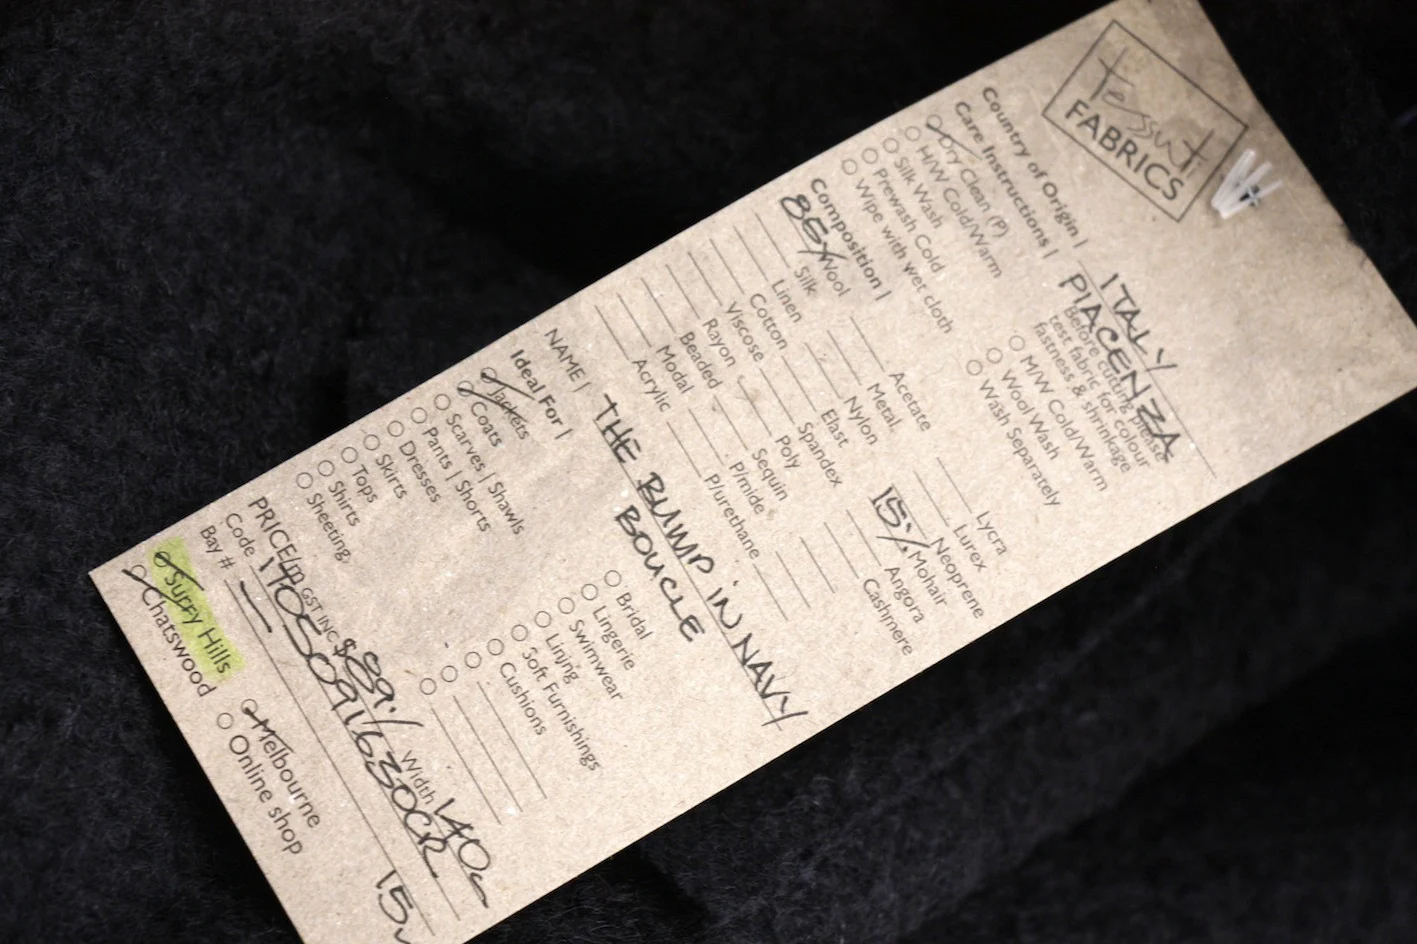 Tessuti
FABRICS
Country of Origin | ITALY
PIACENZA
Care Instructions |
Before cutting please
test fabric for colour
fastness & shrinkage
Dry Clean (P)
H/W Cold/Warm
Silk Wash
Prewash Cold
Wipe with wet cloth
M/W Cold/Warm
Wool Wash
Wash Separately
Composition |
85% Wool
Silk
Linen
Cotton
Viscose
Rayon
Beaded
Modal
Acrylic
Acetate
Metal
Nylon
Elast
Spandex
Poly
Sequin
P/mide
P/urethane
Lycra
Lurex
Neoprene
15% Mohair
Angora
Cashmere
NAME | THE BUMP IN NAVY
BOUCLE
Ideal For |
Jackets
Coats
Scarves | Shawls
Pants | Shorts
Dresses
Skirts
Tops
Shirts
Sheeting
Bridal
Lingerie
Swimwear
Lining
Soft Furnishings
Cushions
PRICE/m GST INC $89./ Width 140c
Code
Bay #
Surry Hills
Chatswood
Melbourne
Online shop